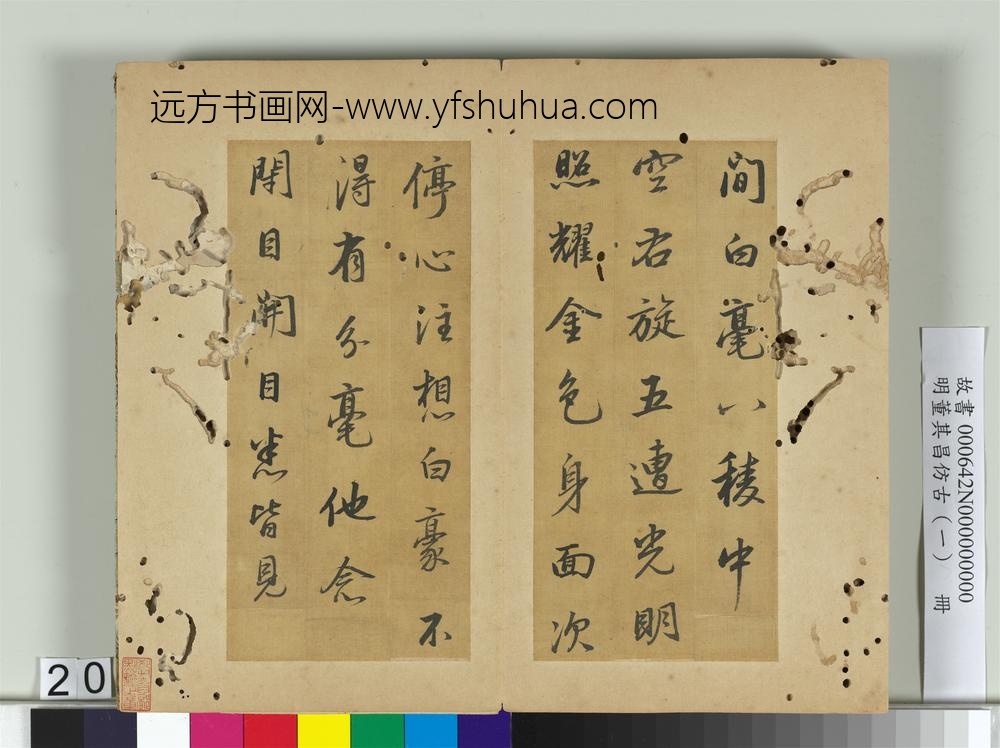 远方书画网-www.yfshuhua.com
間白毫八稜中
空右旋五遭光明
照耀金色身面次
停心注想白豪不
得有分毫他念
閉目開目悉皆見
故書 000642N000000000
明董其昌仿古(一) 冊
20